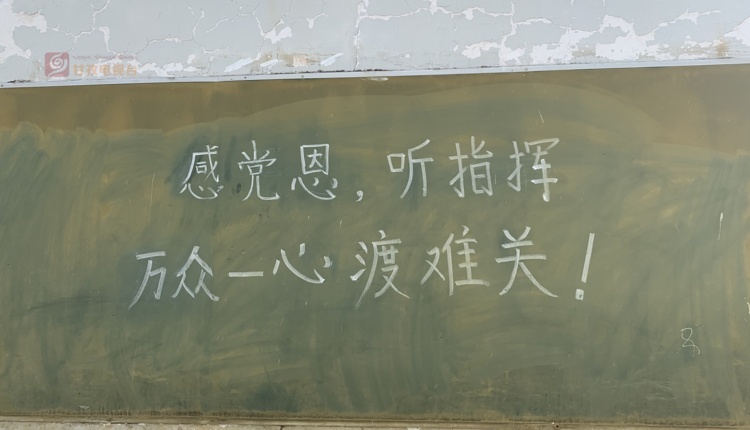 感党恩,听指挥
万众一心渡难关!